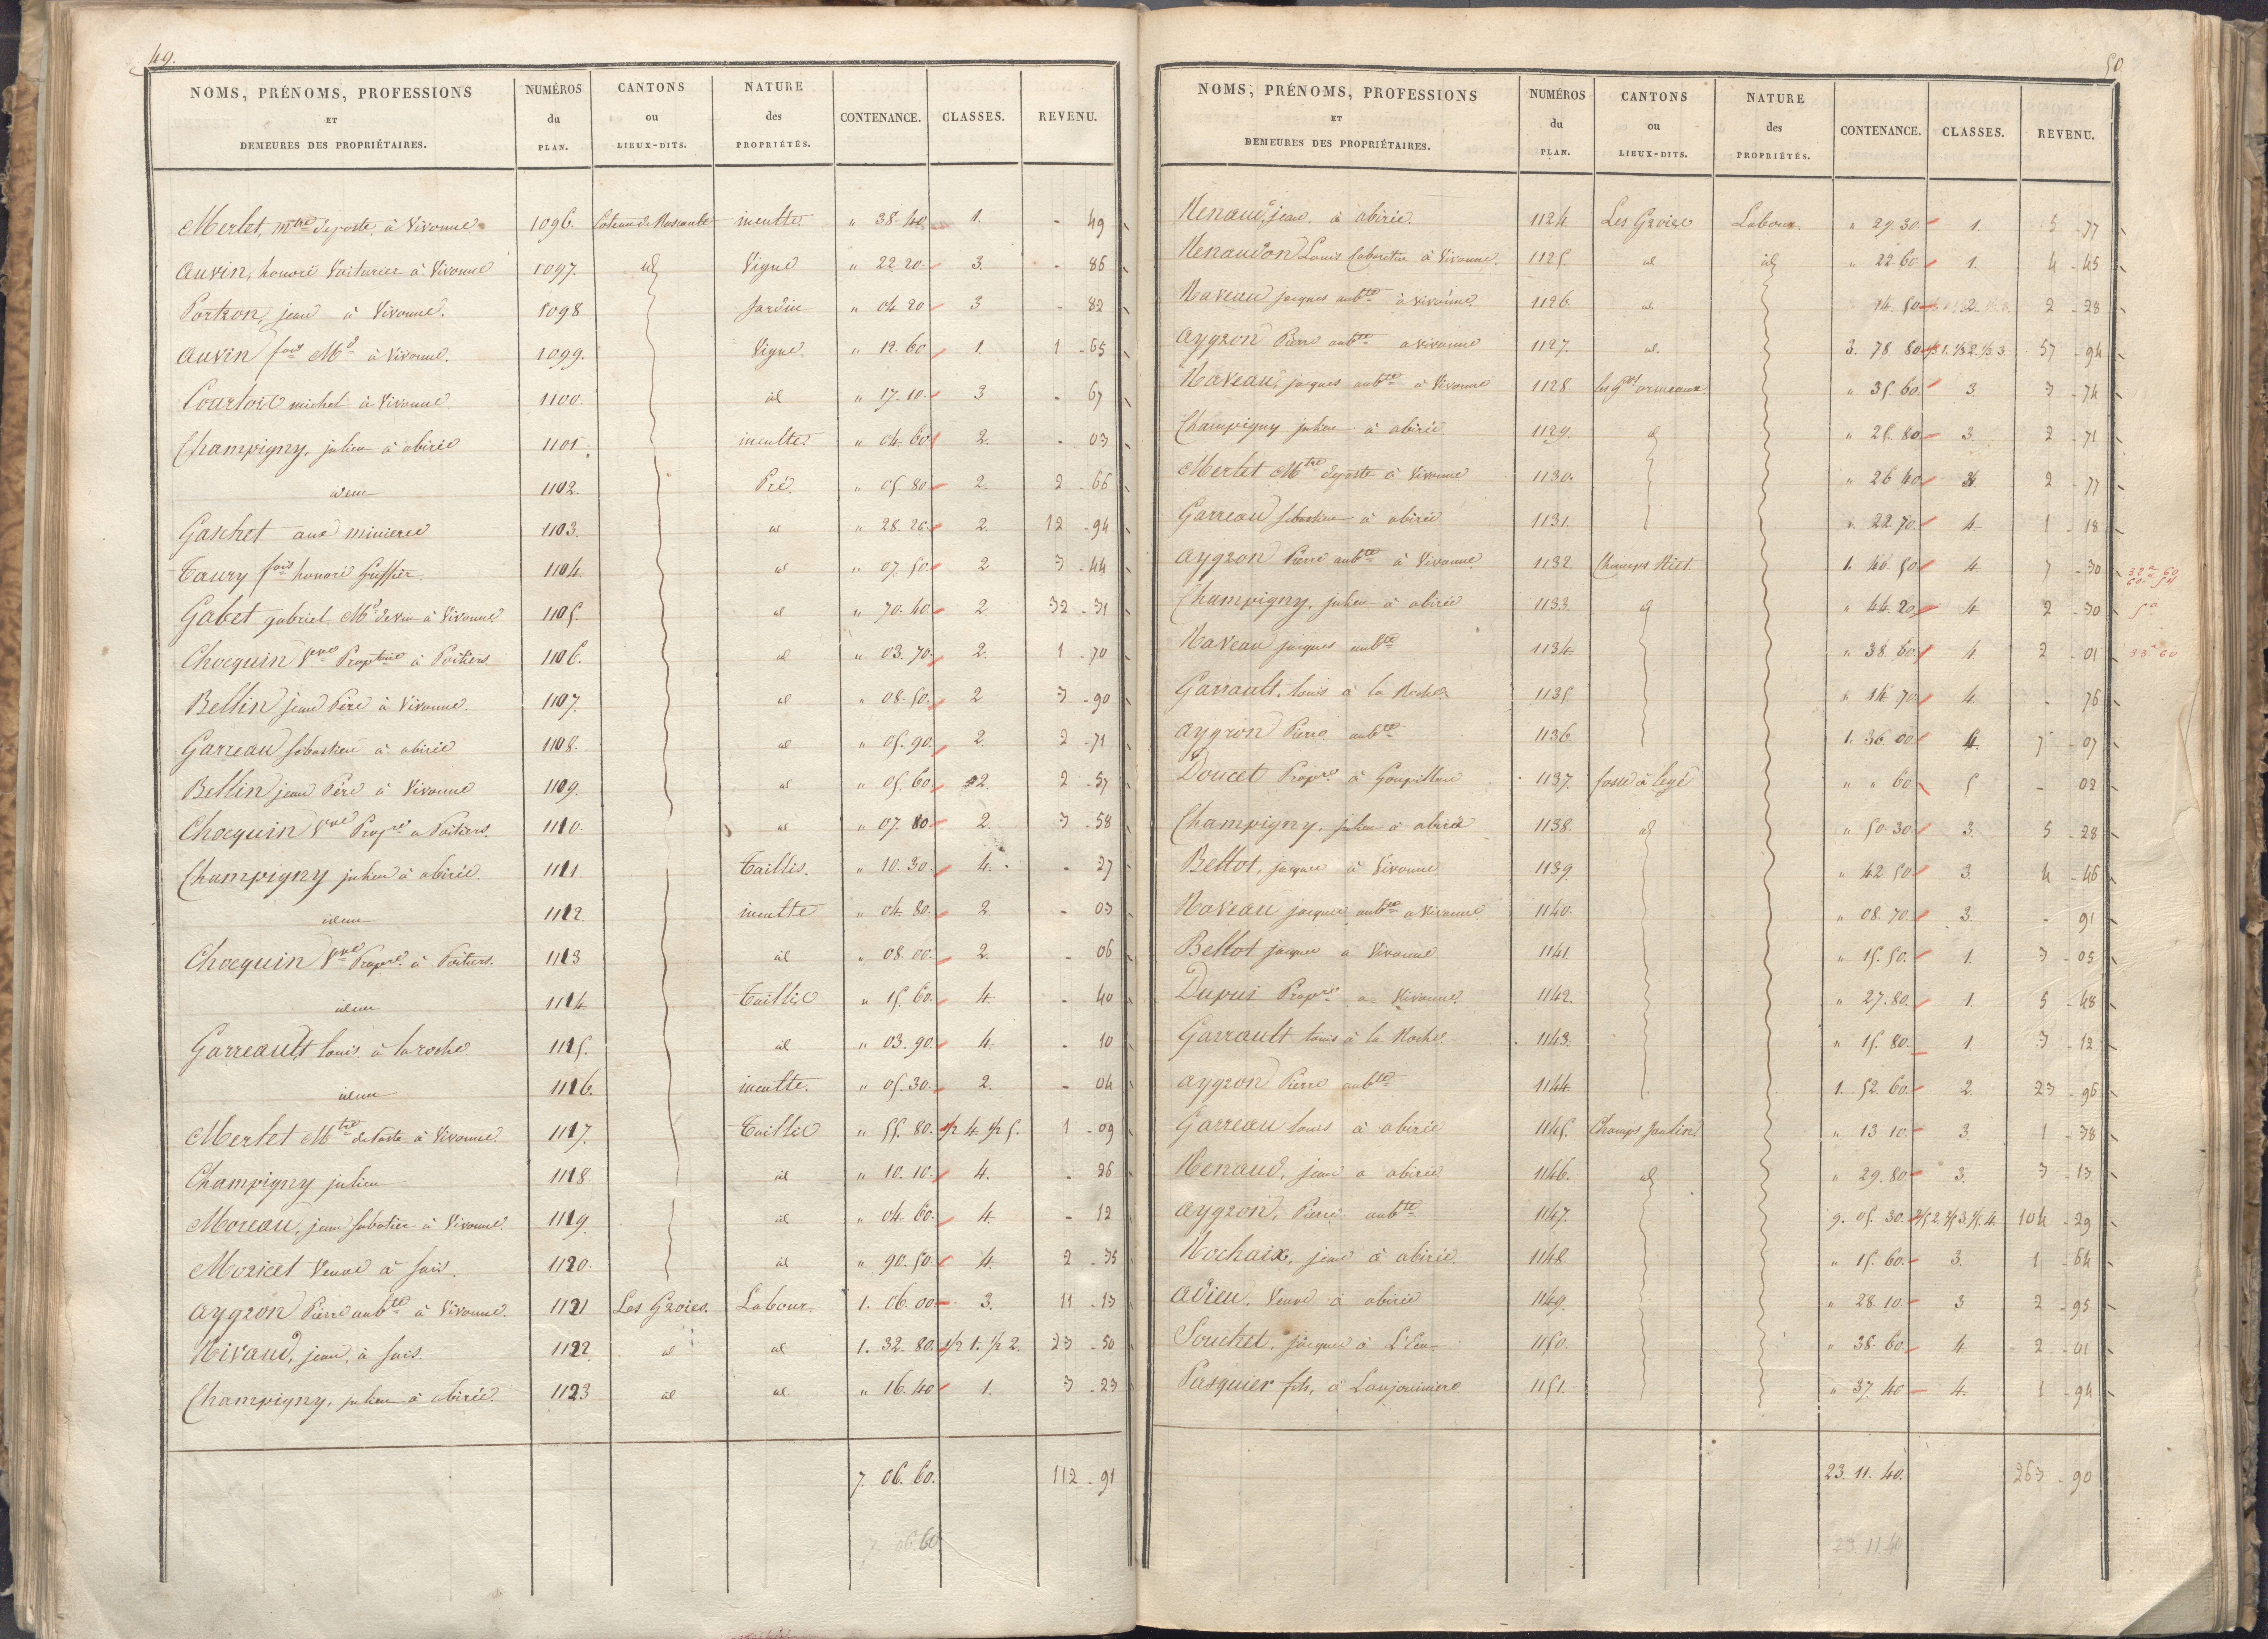 49.
NOMS, PRÉNOMS, PROFESSIONS ET DEMEURES DES PROPRIÉTAIRES. NUMÉROS du PLAN. CANTONS ou LIEUX-DITS. NATURE des PROPRIÉTÉS. CONTENANCE. CLASSES. REVENU.
Merlet, mtre de poste, à Vivonne 1096. Coteau de inculte " 38. 40 1. - 49
Auvin, honoré Voiturier à Vivonne 1097. id Vigne " 22 20 3. - 86
Portron, jean à Vivonne. 1098 Jardin " 04 20 3 - 82
Auvin fois Md à Vivonne. 1099. Vigne. " 12. 60 1. 1 - 65
Courtois michel à Vivonne. 1100. id " 17. 10 3 - 67
Champigny, julien à abirée 1101. inculte. " 04. 60 2. - 03
idem 1102. Pré. " 05 80 2. 2 - 66
Gaschet aux minieres 1103. id " 28. 20 2. 12 - 94
Taury fois honoré Greffier. 1104. id " 07. 50 2 3 - 44
Gabet gabriel, Md de vin à Vivonne 1105. id " 70. 40 2 32 - 31
Chocquin Vve Proptre à Poitiers. 1106. id " 03. 70 2. 1 - 70
Bellin jean Père à Vivonne. 1107. id " 08. 50. 2 3 - 90
Garreau sebastien à abirée 1108. id " 05. 90 2. 2 - 71
Bellin jean Père à Vivonne 1109. id " 05. 60. 2. 2 - 57
Chocquin Vve Propre à Poitiers. 1110. id " 07. 80 2. 3 - 58
Champigny julien à abirée. 1111 Taillis. " 10. 30. 4. - 27
idem 1112. inculte " 04. 80. 2 - 03
Chocquin Vve Propre à Poitiers. 1113 id " 08. 00. 2. - 06
idem 1114. Taillis " 15. 60. 4. - 40
Garreault louis à la roche 1115. id " 03. 90. 4. - 10
idem 1116. inculte. " 05. 30. 2. - 04
Merlet Mtre de Poste à Vivonne 1117. Taillis " 55. 80. 1/2 4. 1/2 5. 1 - 09
Champigny julien 1118. id " 10. 10. 4. - 26
Moreau, jean Sabotier à Vivonne. 1119 id " 04. 60. 4. - 12
Moricet Veuve à Sais. 1120. id " 90. 50. 4. 2 - 35
Aygron Pierre aubte à Vivonne. 1121 Les Groies. Labour. 1. 06. 00 3. 11 - 13
Rivaud, jean, à Sais. 1122 id id 1. 32. 80. 1/2 1. 1/2 2. 23 - 50
Champigny, julien à abirée. 1123 id id " 16. 40 1. 3 - 23
7. 06. 60. 112 - 91
7. 06. 60
50
NOMS, PRÉNOMS, PROFESSIONS ET DEMEURES DES PROPRIÉTAIRES. NUMÉROS du PLAN. CANTONS ou LIEUX-DITS. NATURE des PROPRIÉTÉS. CONTENANCE. CLASSES. REVENU.
Renaud, jean à abirée. 1124. Les Groies Labour. " 29. 30. 1. 5 - 77
Renaudon Louis Cabaretier à Vivonne. 1125. id id " 22 60. 1. 4 - 45
Raveau jacques aubte à vivonne. 1126. id. 14. 50 2. 2 - 28
Aygron Pierre aubte a vivonne 1127. id. 3. 78. 80 1/3 1. 1/3 2. 1/3 3 57 - 94
Raveau, jacques aubte à Vivonne 1128 les Gds ormeaux " 35. 60. 3. 3 - 74
Champigny julien à abirée 1129. id " 25. 80 3. 2 - 71
Merlet Mtre de poste à Vivonne 1130. " 26 40 2 - 77
Garreau sebastien à abirée 1131. " 22. 70. 4. 1 - 18
Aygron Pierre aubte à Vivonne 1132 Champs 1. 40. 50 4. 7 - 30
Champigny, julien à abirée 1133. id " 44. 20 4. 2 - 30 5a
Raveau jacques aubte 1134. " 38. 60. 4. 2 - 01 33a 60
Garrault, louis à la Roche 1135. " 14 70. 4. - 76
Aygron Pierre aubte 1136. 1. 36. 00 4. 7 - 07
Doucet Propre à Goupillon 1137. fosse à legé " " 60. 5 - 02
Champigny, julien à abirée 1138. id " 50. 30. 3. 5 - 28
Bellot, jacques à Vivonne 1139 " 42 50 3. 4 - 46
Raveau jacques aubte a Vivonne 1140. " 08. 70. 3. - 91
Bellot jacques a Vivonne 1141. " 15. 50. 1. 3 - 05
Dupuis Propre a Vivonne. 1142. " 27. 80. 1. 5 - 48
Garrault louis à la Roche 1143. " 15. 80. 1. 3 - 12
Aygron Pierre aubte 1144. 1. 52. 60. 2. 23 - 96
Garreau louis à abirée 1145. Champs " 13 10. 3. 1 - 38
Renaud, jean a abirée 1146. id " 29. 80. 3. 3 - 13
Aygron, Pierre aubte 1147. 9. 05. 30. 2/5 2. 2/5 3. 1/5 4. 104 - 29
Rochaix, jean à abirée 1148 " 15. 60. 3. 1 - 64
Adieu, Veuve à abirée 1149. " 28. 10. 3 2 - 95
Souchet, jacques à 1150. " 38. 60. 4 2 - 01
Pasquier fils, à 1151. " 37. 40 4. 1 - 94
23. 11. 40. 263 - 90
23. 11 40